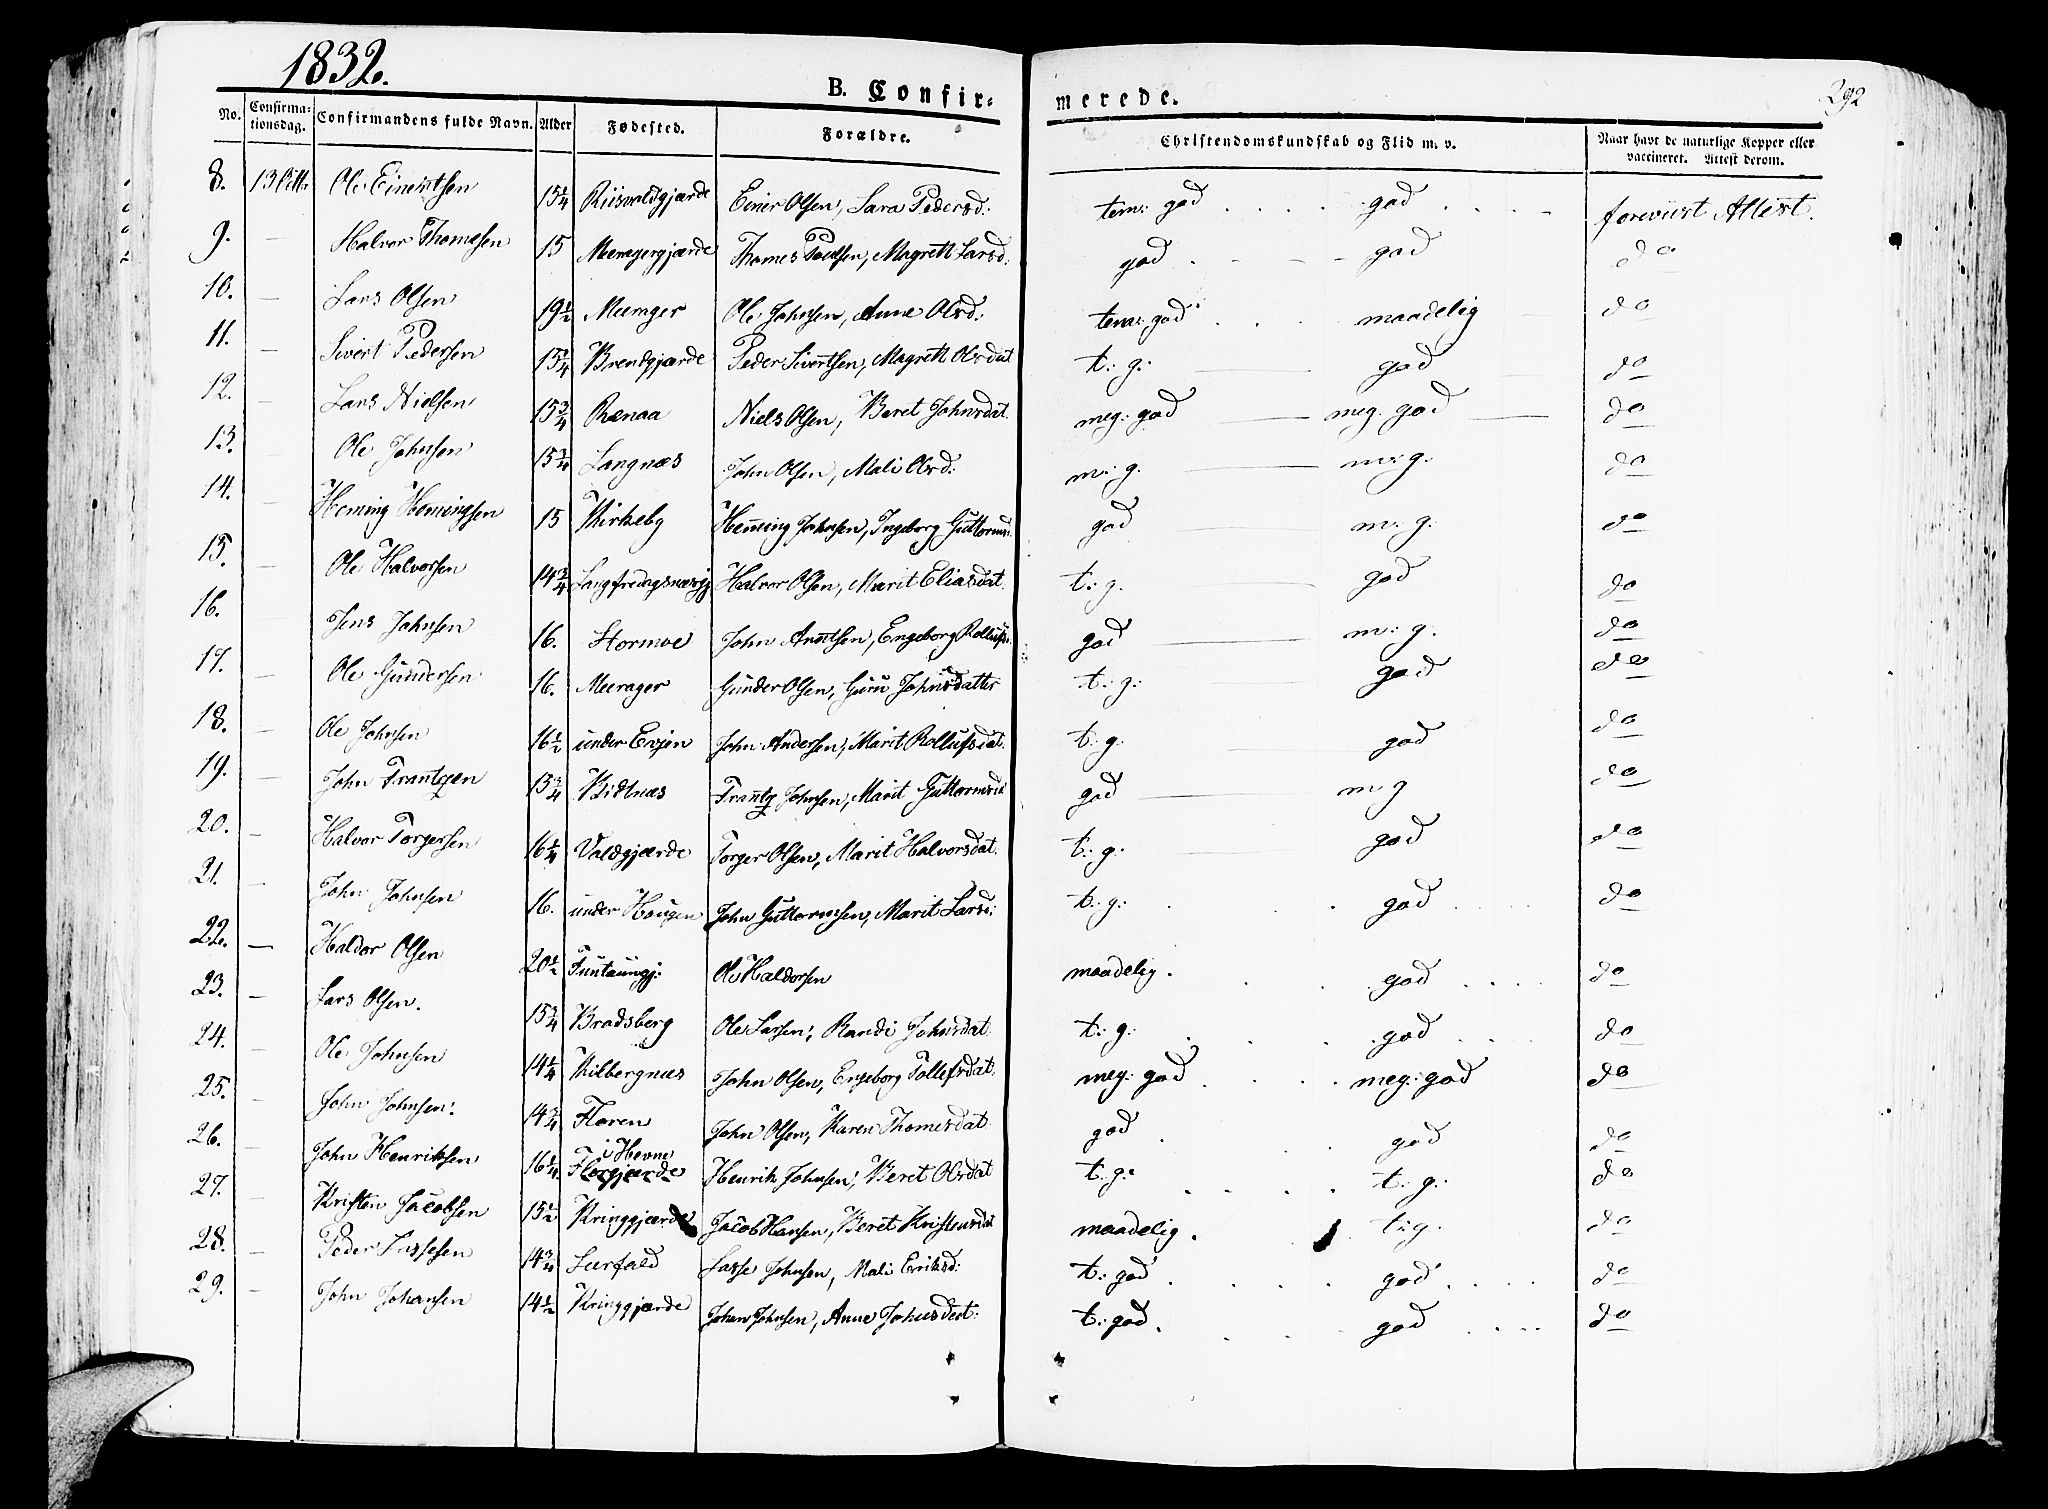 1832.
B. Confir=
merede.
292
No. Confirma=tionsdag. Confirmandens fulde Navn. Alder Fødested. Forældre. Christendomskundskab og Flid m. v. Naar havt de naturlige Kopper eller vaccineret. Attest derom.
8. 13 Octbr Ole Einertsen 15 1/4 Riisvoldgjærde Einer Olsen, Sara Pedersd: tem: god god foreviist Attest.
9. — Halvor Thomesen 15 Meeragergjærde Thomes Poulsen, Magrett Larsd: god god do
10. — Lars Olsen 19 1/2 Meerager Ole Johnsen, Anne Olsd: tem: god maadelig do
11. — Sivert Pedersen 15 1/4 Brendgjærde Peder Sivertsen, Magrett Olsdat t: g: god do
12. — Lars Nielsen 15 3/4 Renaa Niels Olsen, Beret Johnsdat. meg: god meg. god do
13. — Ole Johnsen 15 3/4 Langnæs John Olsen, Mali Olsd: m: g: m: g: do
14. — Heming Hemingsen 15 Kirkeby Hemming Johnsen, Ingeborg Guttormsd: god m: g: do
15. — Ole Halvorsen 14 3/4 Langfredagsnæsgj Halvor Olsen, Marit Eliasdat. t: g. god do
16. Jens Johnsen 16. Stormoe John Arntsen, Engeborg god m: g. do
17. — Ole Gundersen 16. Meerager Gunder Olsen, Guru Johnsdatter t: g: god do
18. — Ole Johnsen 16 1/2 under Evjen John Andersen, Marit Rollufsdat. t: g: god do
19. — John Frantzen 15 3/4 Bidtnæs Frantz Johnsen, Marit Guttormsd god m: g do
20. — Halvor Torgersen 16 1/4 Voldgjærde Torger Olsen, Marit Halvorsdat. t: g: god do
21. — John Johnsen 16. under Haugen John Guttormsen, Marit Larsd: t: g: god do
22. — Haldor Olsen 20 1/2 Funtaungj: Ole Haldorsen maadelig. god do
23. — Lars Olsen. 15 3/4 Bradsberg Ole Larsen, Randi Johnsdat t: g: god do
24. — Ole Johnsen 14 1/4 Kilbergnæs John Olsen, Engeborg Tollefsdat. meg: god meg: god do
25. — John Johnsen. 14 3/4 Floren John Olsen, Karen Thomesdat god god do
26. — John Henriksen 16 1/4 i Hovne Florgjærde Henrik Johnsen, Beret Olsdat t: g: t: g: do
27. — Kristen Jacobsen 15 1/2 Kringgjærde Jacob Hansen, Beret Kristensdat maadelig. t: g. do
28. — Peder Lassesen 14 3/4 Lurfald Lasse Johnsen, Mali Eriksd: t: god god do
29. — John Johansen 14 1/2 Kringgjærde Johan Johnsen, Anne Johnsdat: t: god. god do